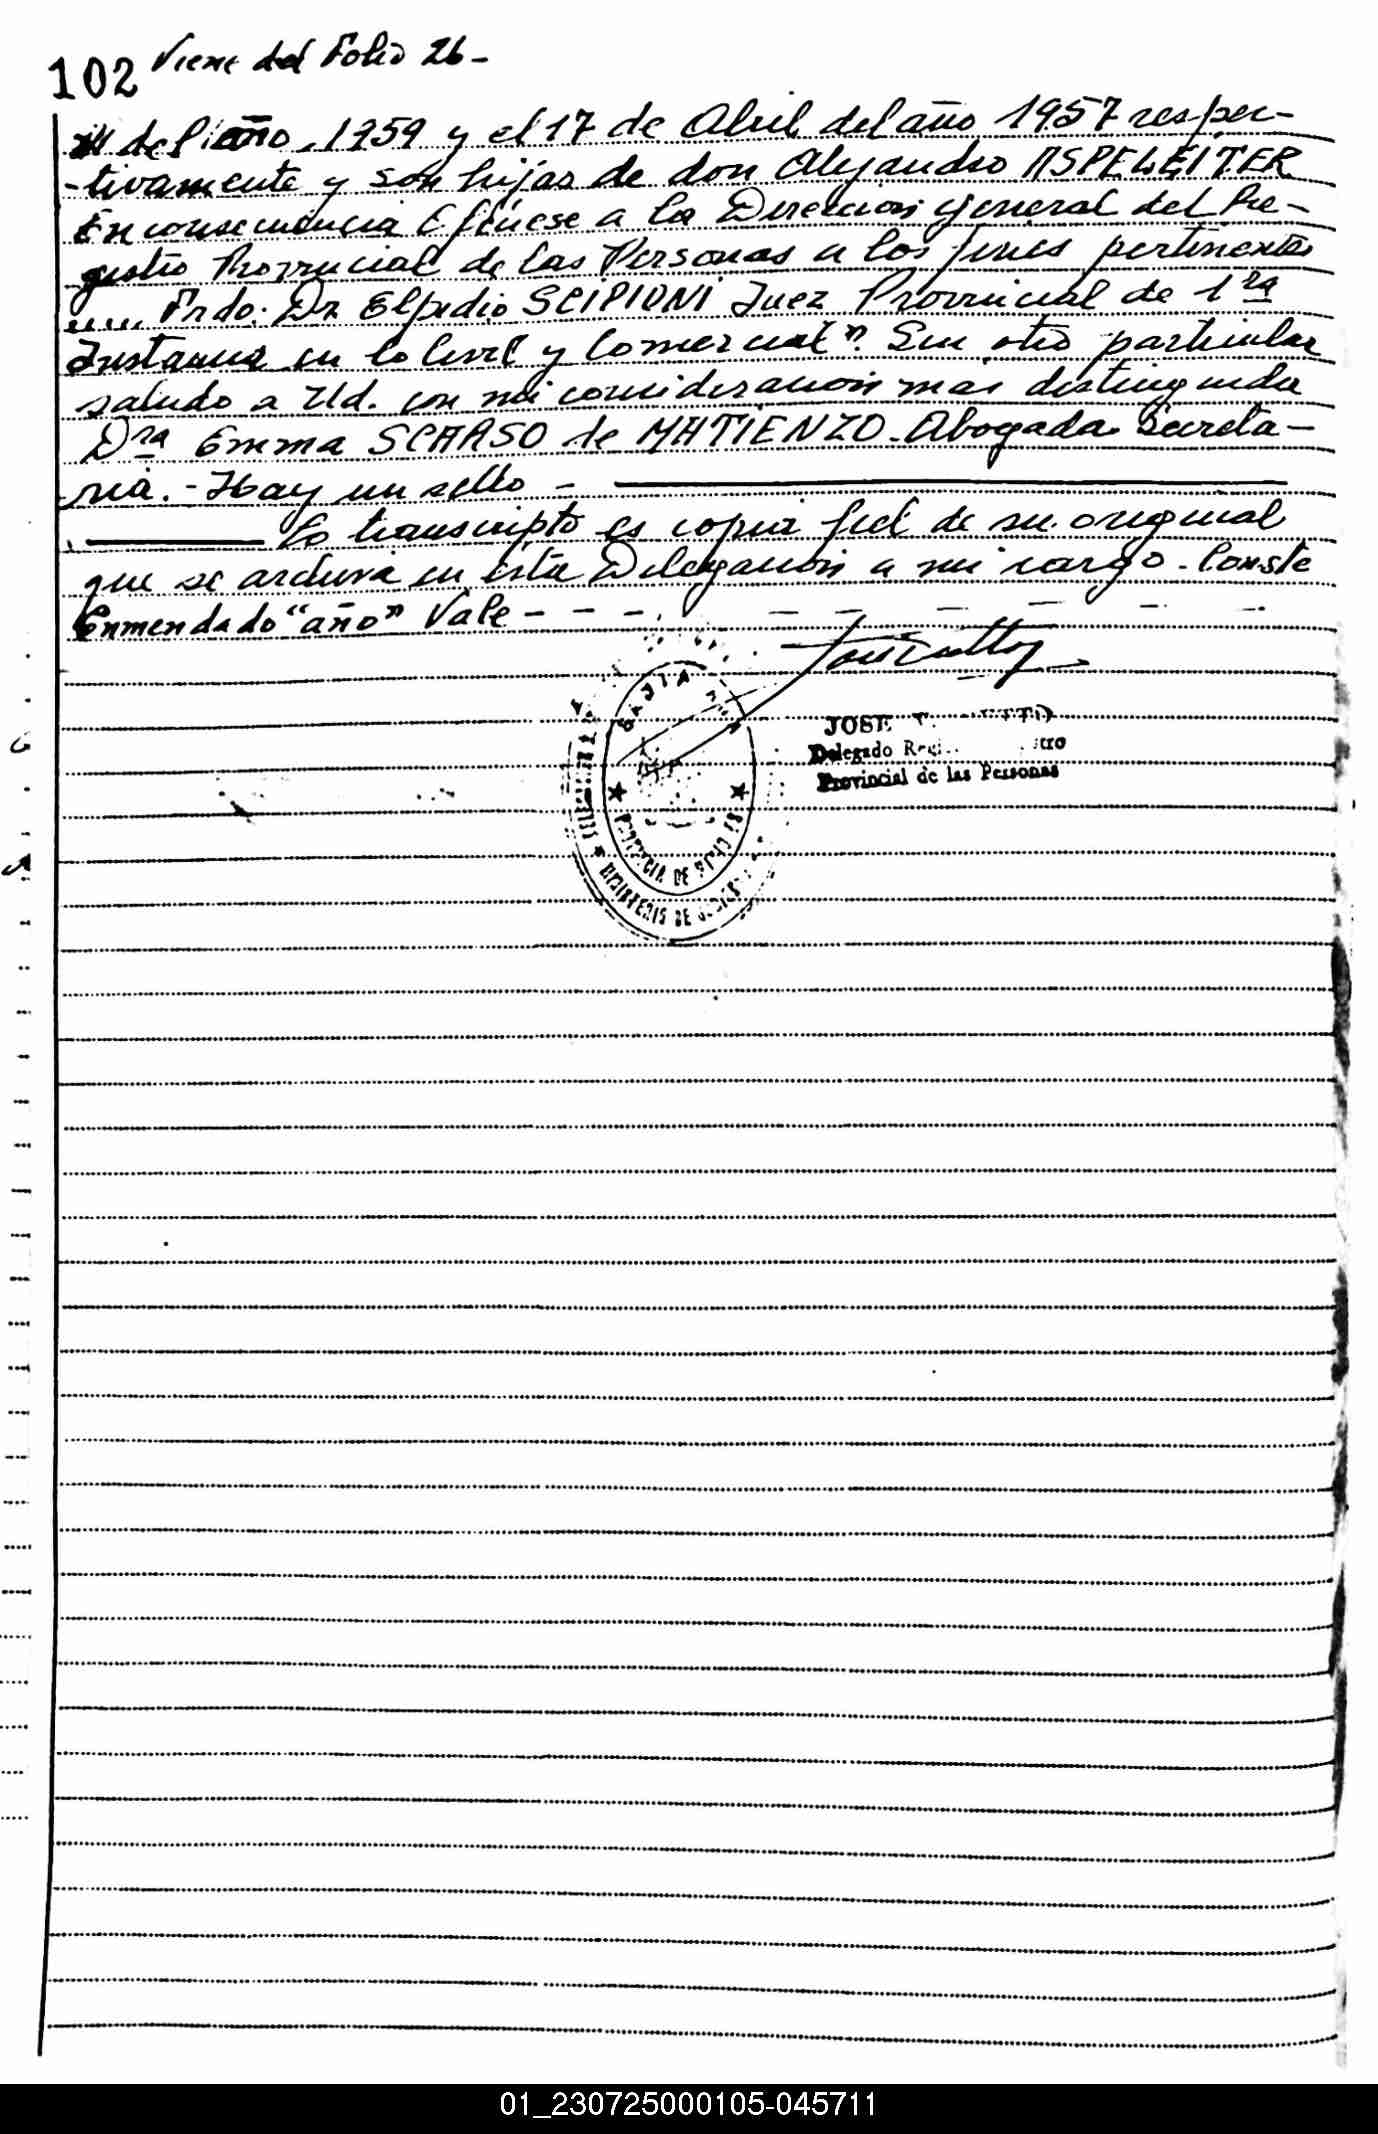 102 Viene del Folio 26-
del año 1959 y el 17 de Abril del año 1957 respec-
-tivamente y son hijas de don Alejandro ASPELEITER
En consecuencia Ofíciese a la Direccion general del Re-
gistro Provincial de las Personas a los fines pertinentes
..... Frdo: Dr Elpidio SCIPIONI Juez Provincial de 1ra
Instancia en lo Civil y Comercial". Sin otro particular
saludo a Ud. con mi consideracion mas distinguida
Dra Emma SCARSO de MATIENZO. Abogada Secreta-
ria. - Hay un sello -
Lo transcripto es copia fiel de su original
que se archiva en esta Delegacion a mi cargo. Conste
Enmendado "año" Vale - - -
JOSE
Delegado
Provincial de las Personas
PROVINCIA DE
MINISTERIO DE
01_230725000105-045711